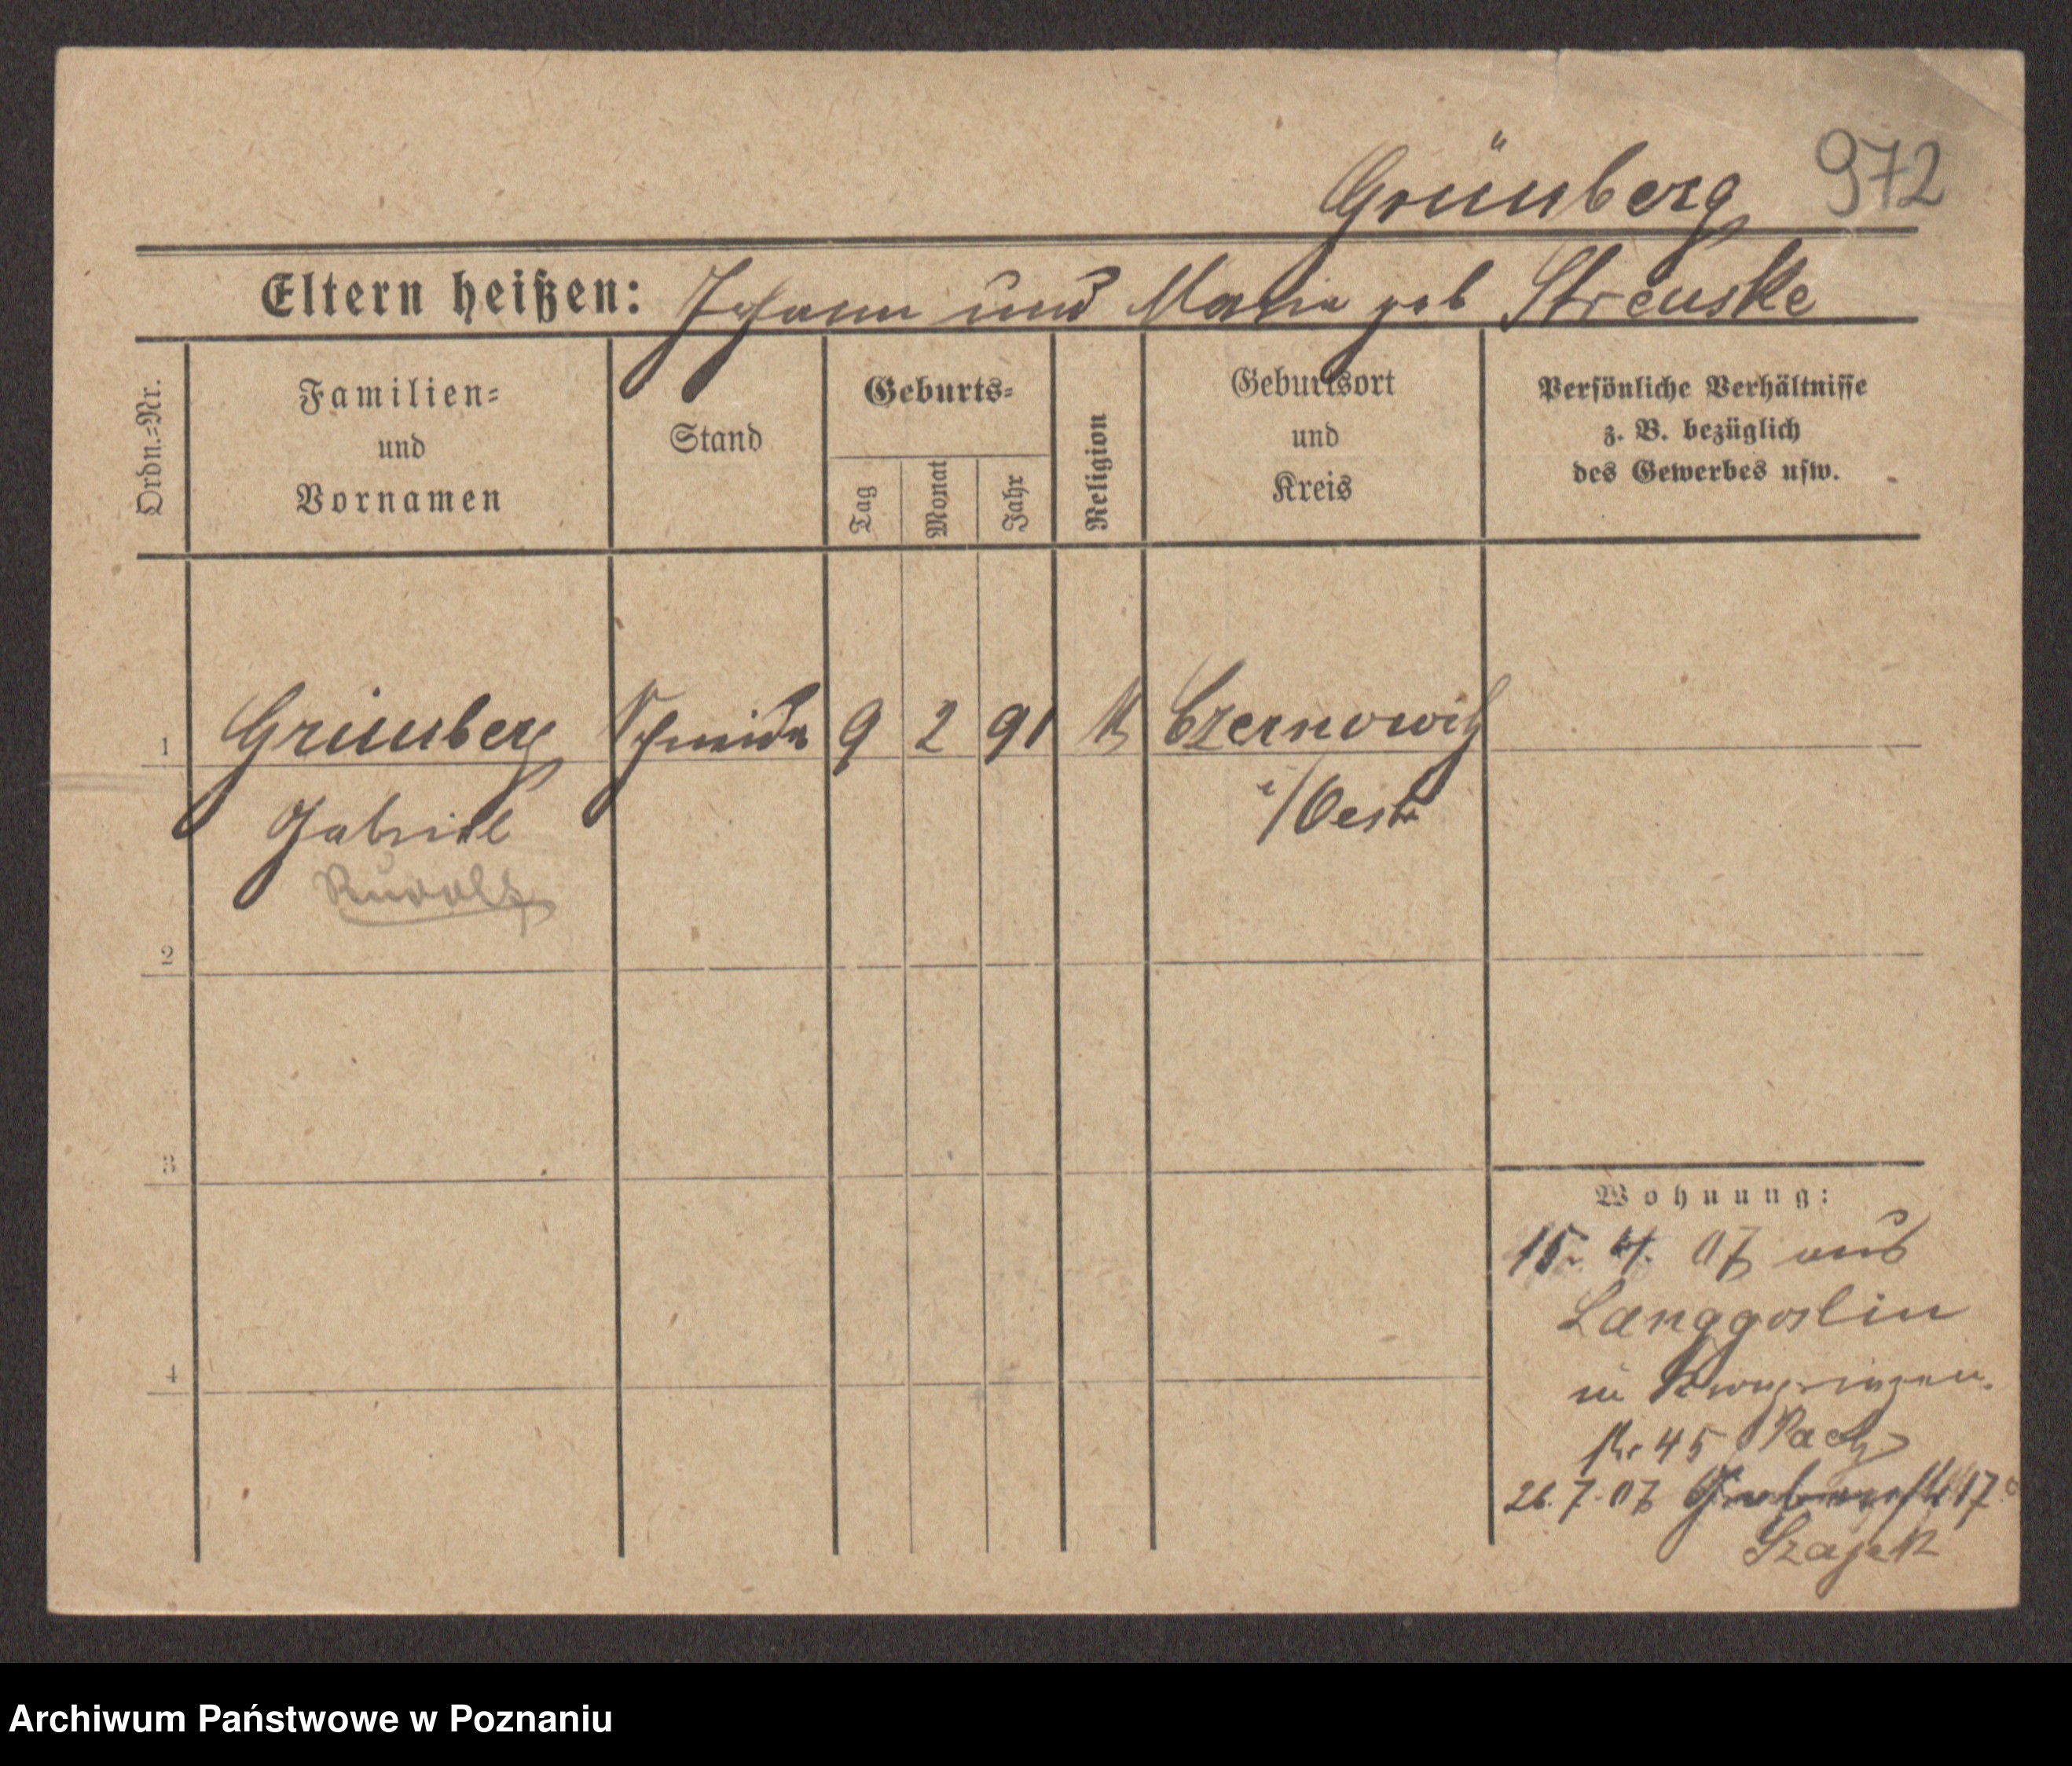 Grünberg 972
Eltern heißen: Johann und Maria geb Streuske
Ordn.=Nr.
Familien=
und
Vornamen
Stand
Geburts=
Tag
Monat
Jahr
Religion
Geburtsort
und
Kreis
Persönliche Verhältnisse
z. B. bezüglich
des Gewerbes usw.
1 Grünberg Schneider 9 2 91 Czernowitz
Gabriel i/Oestr
Rudolf
2
3
4
Wohnung:
15. 4. 07 aus
Langgoslin
in
Nr 45
26. 7. 07 17
Szajek
Archiwum Państwowe w Poznaniu